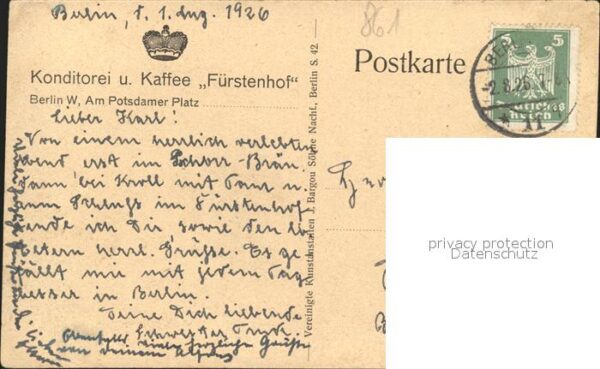 Berlin, d. 1. Aug. 1926
861
Konditorei u. Kaffee „Fürstenhof"
Berlin W, Am Potsdamer Platz
Postkarte
5 5
Deutsches
Reich
BERL
-2.8.26.
* 11
Lieber Karl!
Von einem herrlich verlebten
Abend erst im Pschorr-Bräu
dann bei Kroll mit Tanz u.
zum Schluss im Fürstenhof
sende ich Dir sowie den lb.
Eltern herzl. Grüsse. Es ge-
fällt mir mit jedem Tag
besser in Berlin.
Deine Dich liebende
Schwester Trude.
Ebenfalls viele herzliche Grüße
von deinem
Vereinigte Kunstanstalten J. Bargou Söhne Nachf., Berlin S. 42
Her
privacy protection
Datenschutz